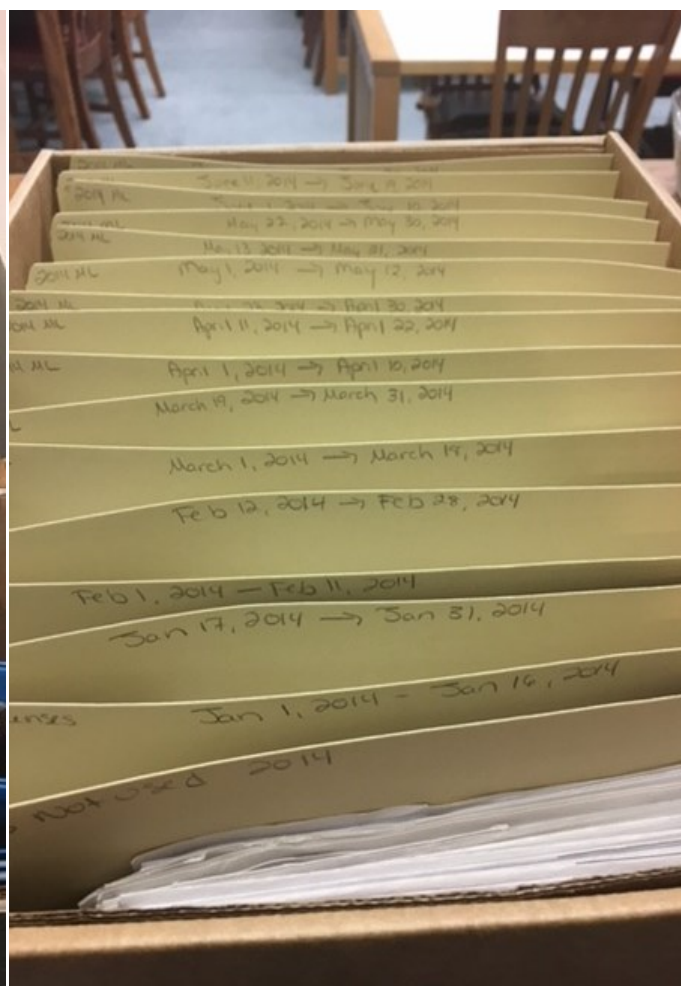 2014 ML
June 11, 2014 → June 19, 2014
2014 ML
May 22, 2014 → May 30, 2014
2014 ML
May 13, 2014 → May 21, 2014
2014 ML
May 1, 2014 → May 12, 2014
2014 ML
2014 → April 30, 2014
2014 ML
April 11, 2014 → April 22, 2014
ML
April 1, 2014 → April 10, 2014
March 19, 2014 → March 31, 2014
March 1, 2014 → March 18, 2014
Feb 12, 2014 → Feb 28, 2014
Feb 1, 2014 – Feb 11, 2014
Jan 17, 2014 → Jan 31, 2014
enses Jan 1, 2014 - Jan 16, 2014
not used 2014